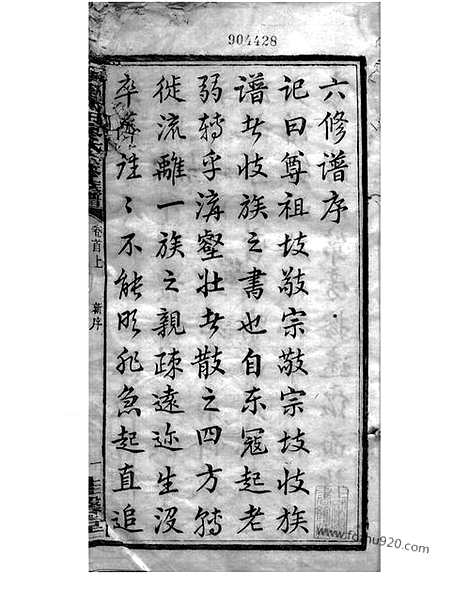 904428
六修譜序
記曰尊祖故敬宗敬宗故收族
譜者收族之書也自東寇起老
弱轉乎溝壑壯者散之四方轉
徙流離一族之親疎遠迩生没
卒葬往々不能明非急起直追
卷首上
新序
www.fozhu920.com